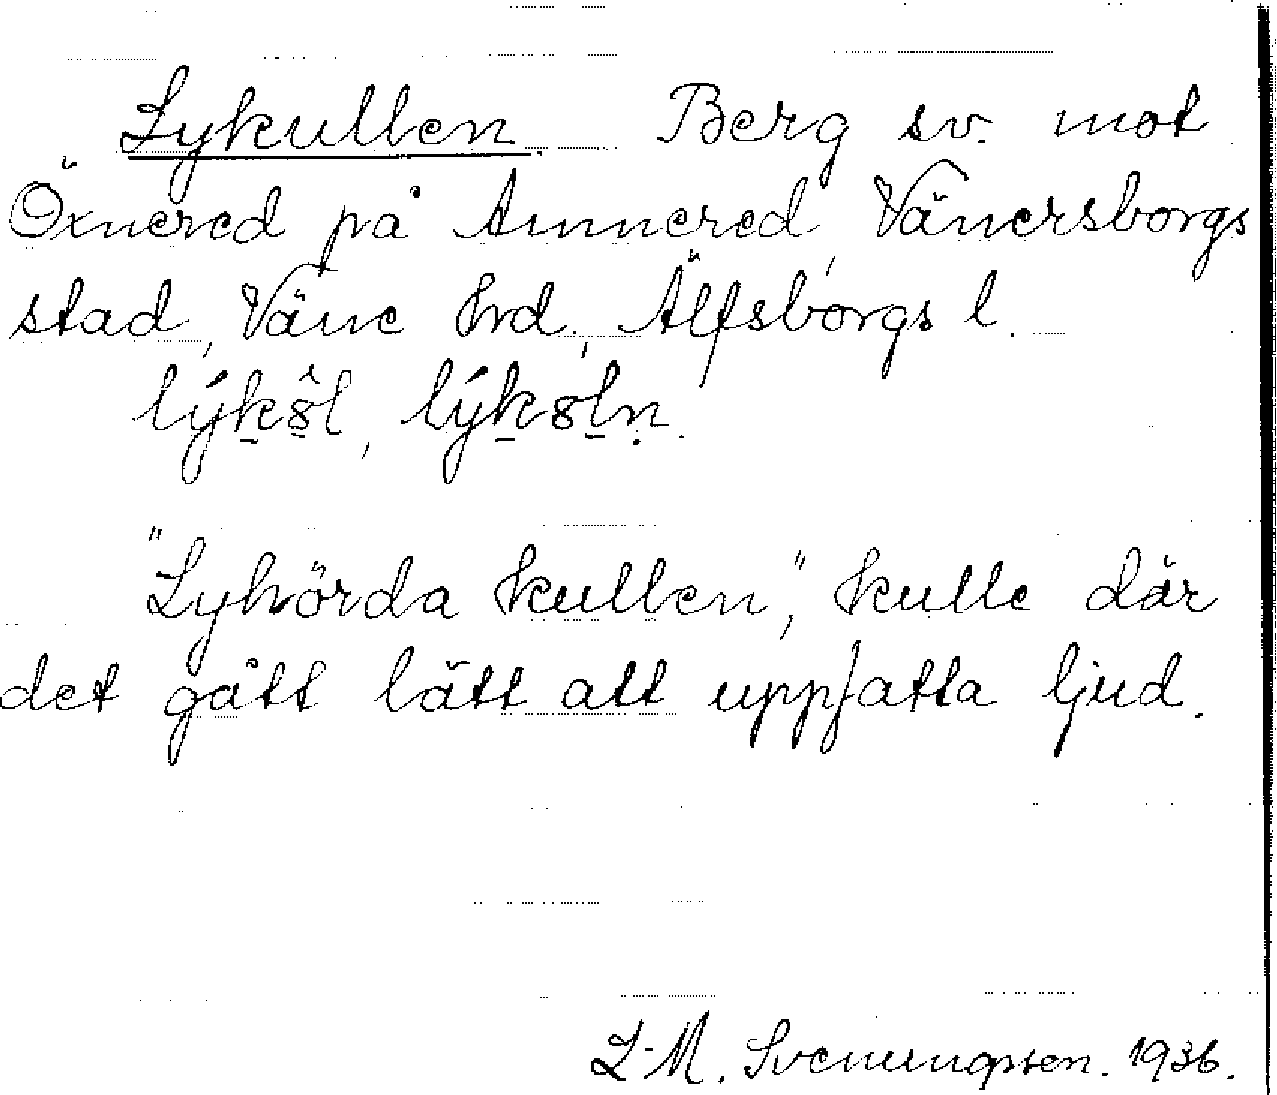 Lykullen. Berg sv. mot
Öxnered på Annered, Vänersborgs
stad, Väne hrd, Älfsborgs l.
"Lyhörda kullen", kulle där
det gått lätt att uppfatta ljud.
L-M. Svenungsson. 1936.